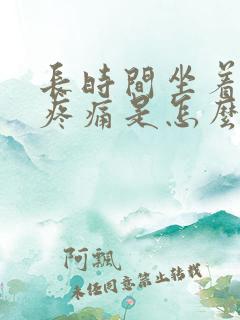 長時間坐着
疼痛是怎麼
阿飄
未经同意禁止转载